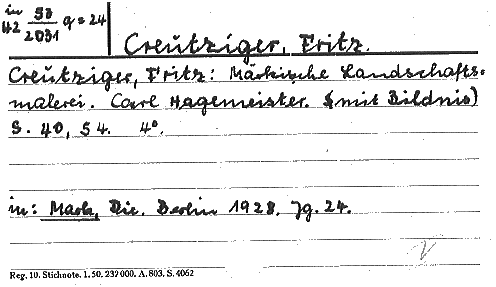 in 53
42 2031 q = 24
Creutziger, Fritz.
Creutziger, Fritz: Märkische Landschafts-
malerei. Carl Hagemeister. (mit Bildnis)
S. 40, 54. 4°.
in: Mark, Die. Berlin 1928. Jg. 24.
Reg. 10. Stichnote. 1. 50. 232000. A. 803. S. 4062